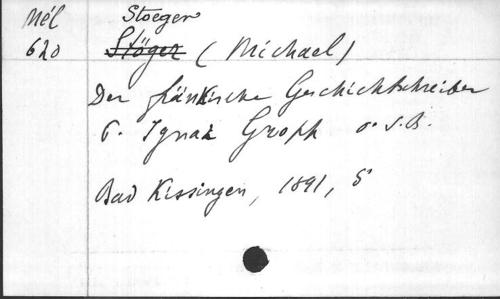 Mél
620
Stoeger
Stöger (Michael)
Der fränkische Geschichtschreiber
P. Ignaz Groph O.S.B.
Bad Kissingen, 1891, 8°